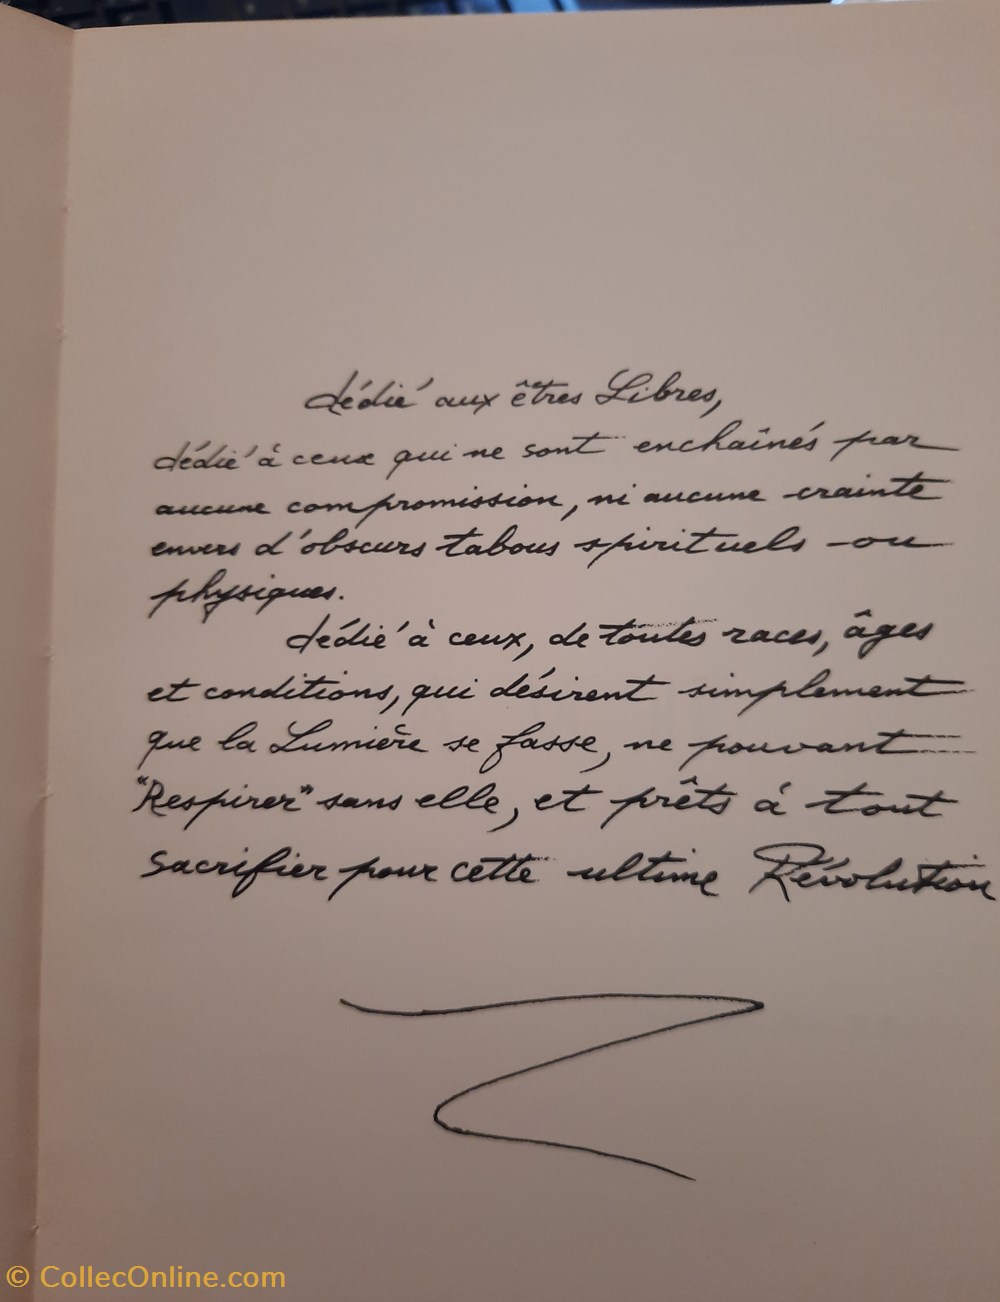 dédié aux êtres Libres,
dédié à ceux qui ne sont enchaînés par
aucune compromission, ni aucune crainte
envers d'obscurs tabous spirituels ou
physiques.
dédié à ceux, de toutes races, âges
et conditions, qui désirent simplement
que la Lumière se fasse, ne pouvant
"Respirer" sans elle, et prêts à tout
sacrifier pour cette ultime Révolution
© CollecOnline.com